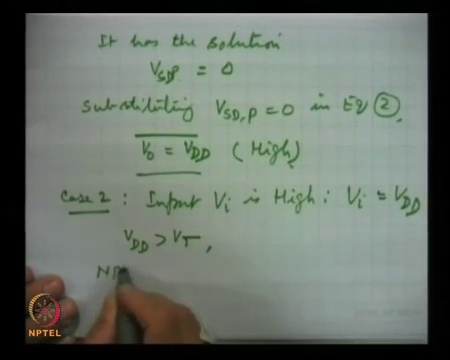 It has the solution
V_SDP = 0
substituting V_SD,P = 0 in Eq ②,
V_o = V_DD (High)
Case 2 : Input V_i is High; V_i = V_DD
V_DD > V_T,
NP
NPTEL